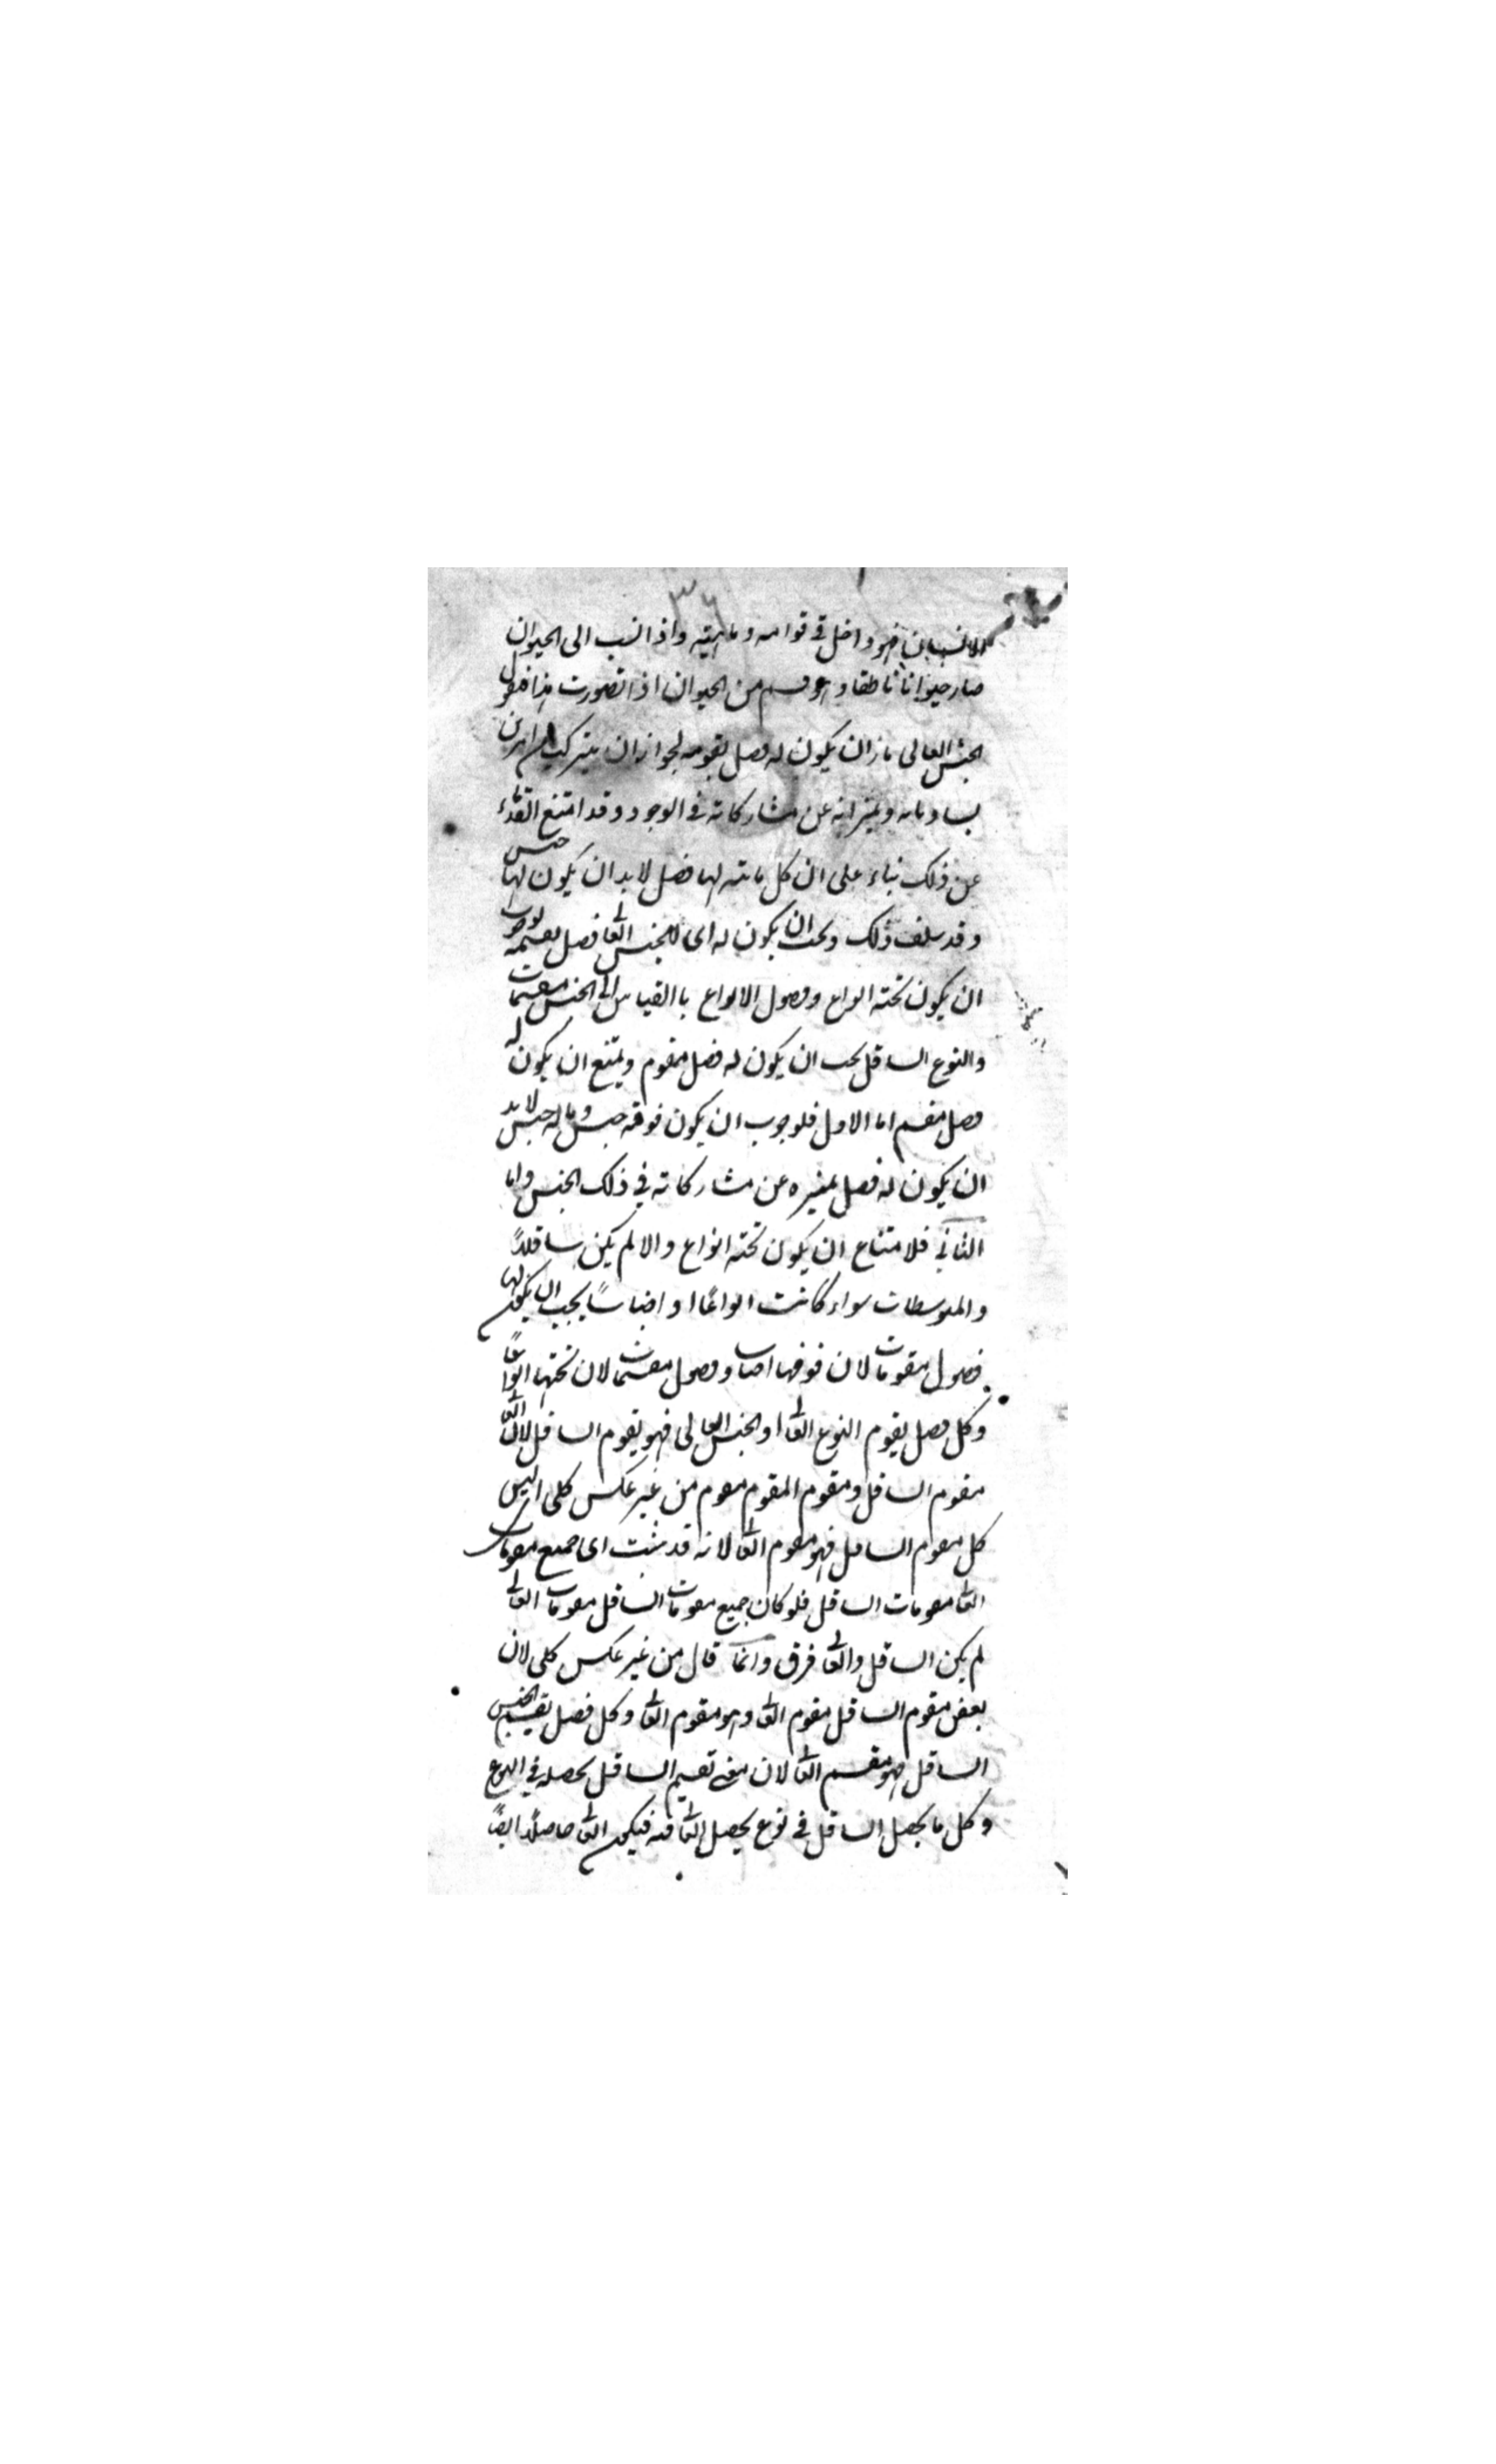 ٣٦
الانسان فهو داخل في قوامه وماهيته واذا نسب الى الحيوان
صار حيوانا ناطقا وهو قسم من الحيوان اذا تصورت هذا فنقول
الجنس العالى جاز ان يكون له فصل يقومه لجواز ان يتركب من امرين
يساويانه ويميزانه عن مشاركاته في الوجود وقد امتنع القدماء
عن ذلك بناء على ان كل ماهية لها فصل لابد ان يكون لها جنس
وقد سلف ذلك ويجب ان يكون له اى للجنس العا لى فصل يقسمه لوجوب
ان يكون تحته انواع وفصول الانواع باالقياس الى الجنس مقسمات
والنوع السافل يجب ان يكون له فصل مقوم ويمتنع ان يكون له
فصل مقسم اما الاول فلوجوب ان يكون فوقه جنس وماله جنس لابد
ان يكون له فصل يميزه عن مشاركاته في ذلك الجنس واما
الثاني فلامتناع ان يكون تحته انواع والا لم يكن سافلاً
والمتوسطات سواء كانت انواعًا او اجناسًا يجب ان يكون لها
فصول مقومات لان فوقها اجناسا وفصول مقسمات لان تحتها انواعًا
وكل فصل يقوم النوع العالى او الجنس العالى فهو يقوم السافل لان العالى
مقوم السافل ومقوم المقوم مقوم من غير عكس كلى اى ليس
كل مقوم السافل فهو مقوم العالى لانه قد ثبت اى جميع مقومات
العالى مقومات السافل فلو كان جميع مقومات السافل مقومات العالى
لم يكن السافل والعالى فرق وانما قال من غير عكس كلى لان
بعض مقوم السافل مقوم العالى وهو مقوم العالى وكل فصل يقسم الجنس
السافل فهو مقسم العالى لان معنى تقسيم السافل تحصله في النوع
وكل ما يحصل السافل في نوع يحصل العالى فيه فيكون العالى حاصلاً ايضًا